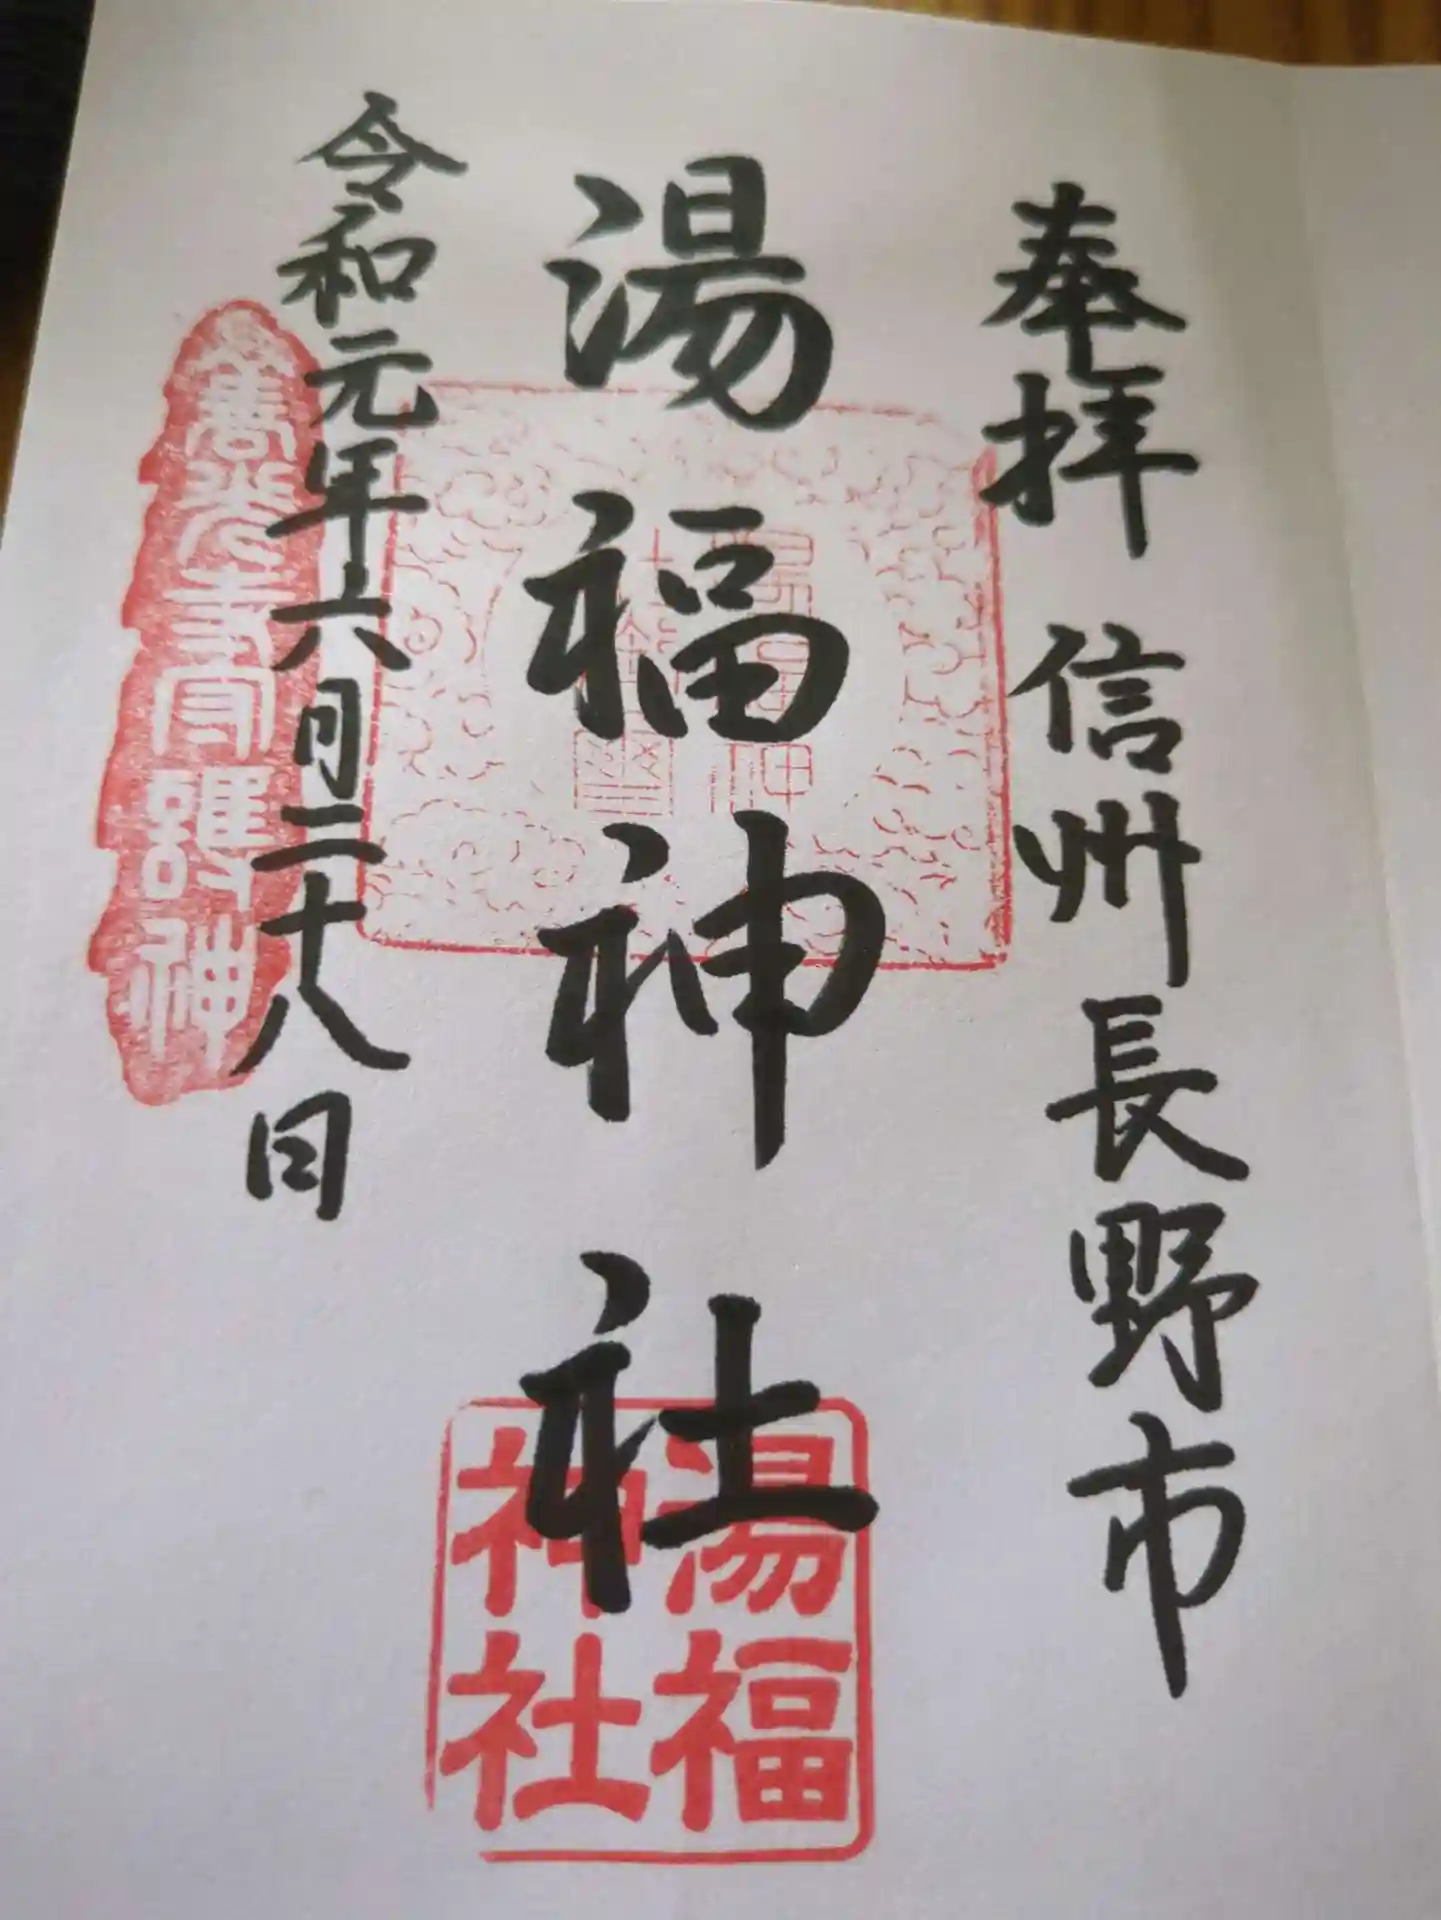 奉拝 信州長野市
湯福神社
令和元年六月二十八日
善光寺守護神
湯福
神社